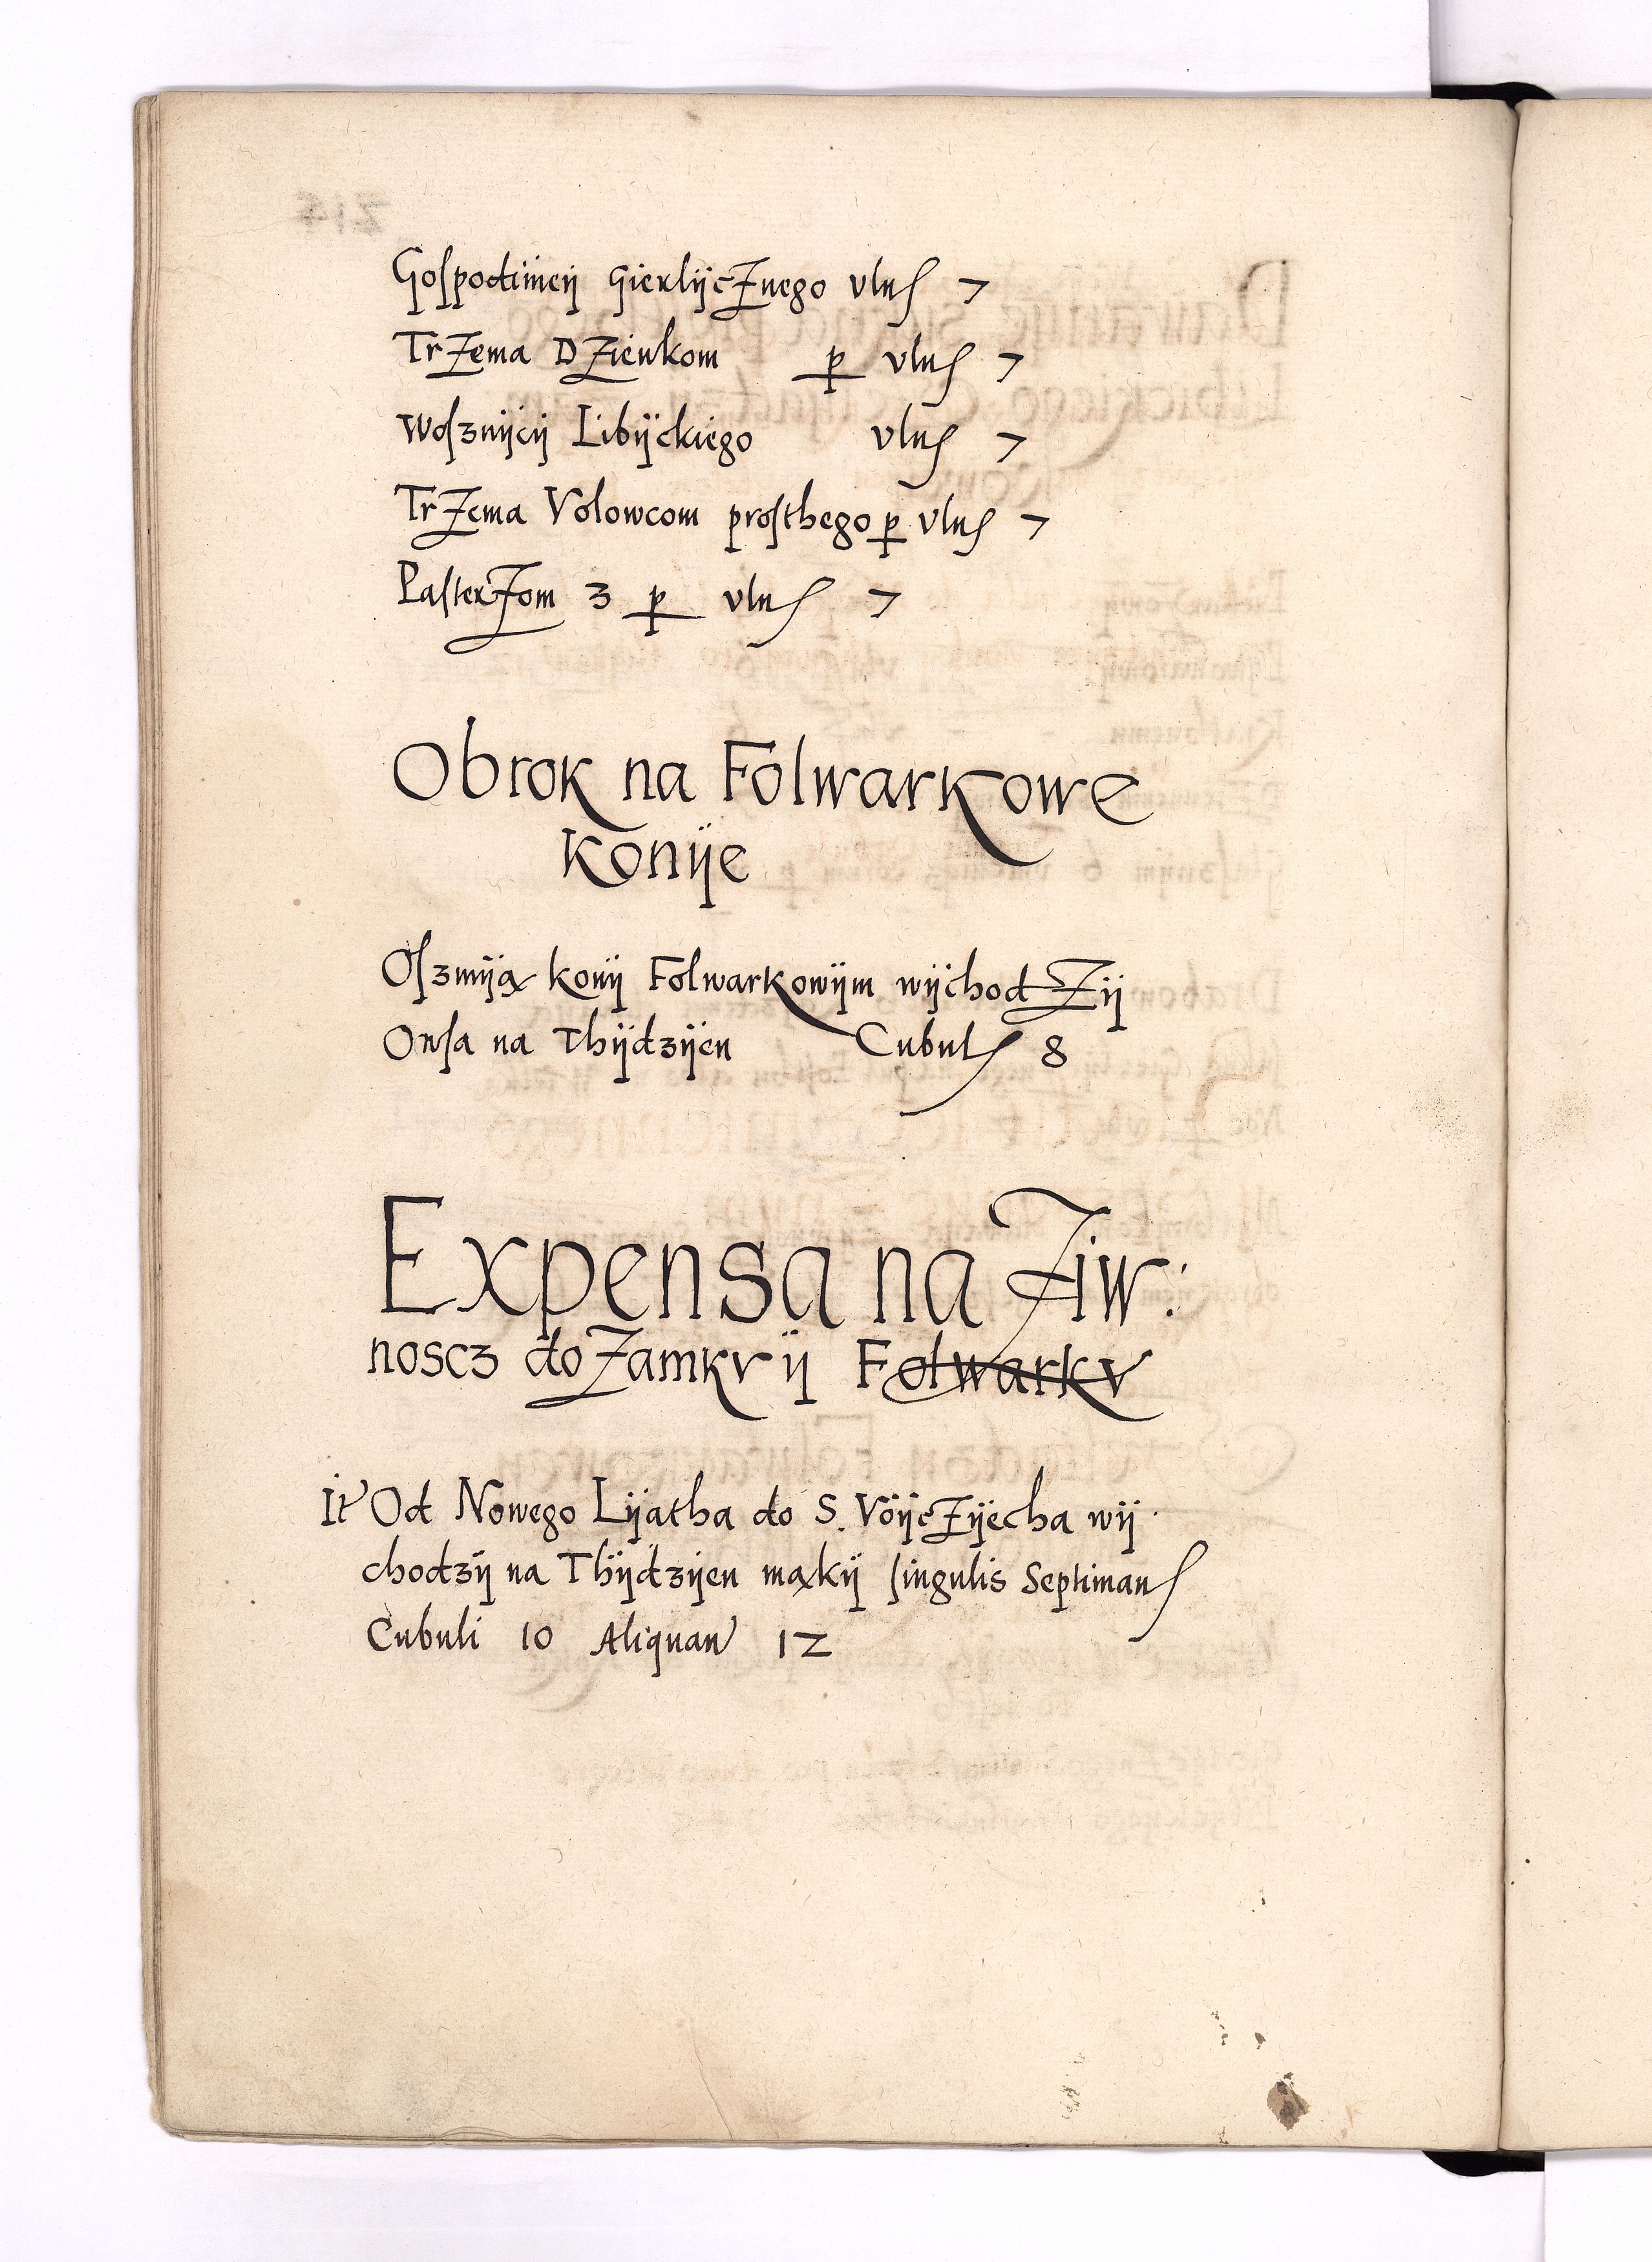 Gospodÿneÿ GierlÿcZnego vlnſ 7
TrZema DZienkom p vlnſ 7
Woſznÿcÿ Libÿckiego vlnſ 7
TrZema Volowcom proſthego p vlnſ 7
PasterZom 3 p vlnſ 7
Obrok na Folwarkowe
Konÿe
Oſzmÿą konÿ Folwarkowÿm wÿchodZÿ
Owſa na Thÿdzÿen Cubulſ 8
Expensa na Ziw:
noscz do Zamkv ÿ Folwarkv
It Od Nowego Lÿatha do S. VoÿcZÿecha wÿ
chodzÿ na Thÿdzÿen mąkÿ ſingulis Septimanſ
Cubuli 10 Aliquan 12